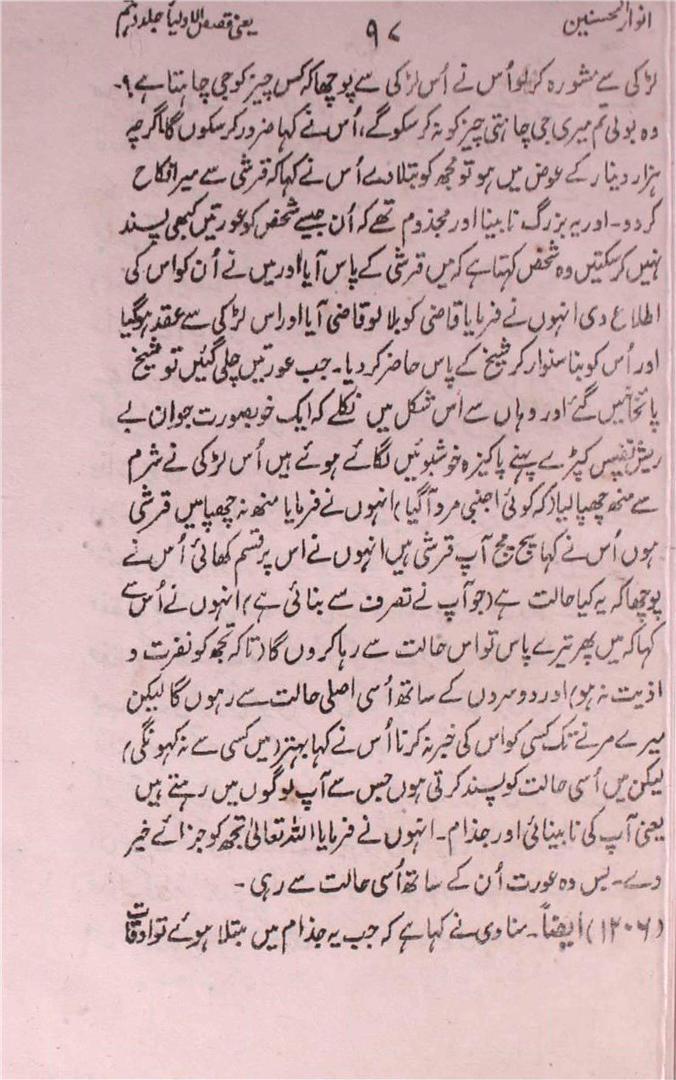 انوار المحسنین ۹۷ یعنی قصص الاولیا جلد دہم
لڑکی سے مشورہ کر لو اُس نے اُس لڑکی سے پوچھا کہ کس چیز کو جی چاہتا ہے ؟۔
وہ بولی تم میری جی چاہتی چیز کو نہ کر سکو گے، اُس نے کہا ضرور کر سکوں گا اگرچہ
ہزار دینار کے عوض میں ہو تو مجھ کو بتلا دے اُس نے کہا کہ قرشی سے میرا نکاح
کر دو۔ اور یہ بزرگ نابینا اور مجذوم تھے کہ اُن جیسے شخص کو عورتیں کبھی پسند
نہیں کر سکتیں وہ شخص کہتا ہے کہ میں قرشی کے پاس آیا اور میں نے اُن کو اس کی
اطلاع دی انہوں نے فرمایا قاضی کو بلا لو قاضی آیا اور اس لڑکی سے عقد ہو گیا
اور اُس کو بنا سنوار کر شیخ کے پاس حاضر کر دیا۔ جب عورتیں چلی گئیں تو شیخ
پائخانہ میں گئے اور وہاں سے اس شکل میں نکلے کہ ایک خوبصورت جوان بے
ریش نفیس کپڑے پہنے پاکیزہ خوشبوئیں لگائے ہوئے ہیں اُس لڑکی نے شرم
سے منھ چھپا لیا (کہ کوئی اجنبی مرد آ گیا) انہوں نے فرمایا منھ نہ چھپا میں قرشی
ہوں اُس نے کہا سچ مچ آپ قرشی ہیں انہوں نے اس پر قسم کھائی اُس نے
پوچھا کہ یہ کیا حالت ہے (جو آپ نے تصرف سے بنائی ہے) انہوں نے اُس سے
کہا کہ میں پھر تیرے پاس تو اس حالت سے رہا کروں گا (تاکہ تجھ کو نفرت و
اذیت نہ ہو) اور دوسروں کے ساتھ اُسی اصلی حالت سے رہوں گا لیکن
میرے مرنے تک کسی کو اس کی خبر نہ کرنا اُس نے کہا بہتر (میں کسی سے نہ کہونگی)
لیکن میں اُسی حالت کو پسند کرتی ہوں جس سے آپ لوگوں میں رہتے ہیں
یعنی آپ کی نابینائی اور جذام۔ انہوں نے فرمایا اللہ تعالیٰ تجھ کو جزائے خیر
دے۔ بس وہ عورت اُن کے ساتھ اُسی حالت سے رہی ۔
(۱۲۰۶) اَیضاً۔ مناوی نے کہا ہے کہ جب یہ جذام میں مبتلا ہوئے تو اوقات